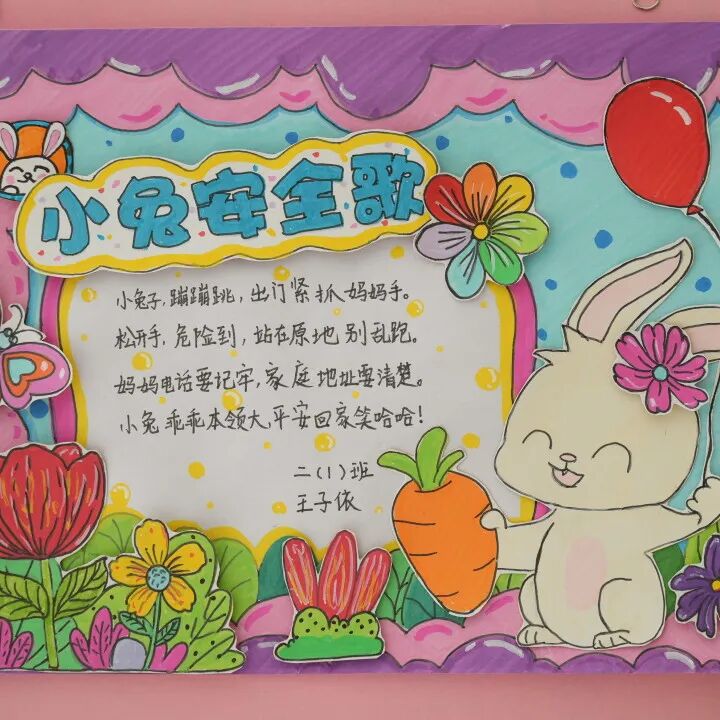 小兔安全歌
小兔子,蹦蹦跳,出门紧抓妈妈手。
松开手,危险到,站在原地别乱跑。
妈妈电话要记牢,家庭地址要清楚。
小兔乖乖本领大,平安回家笑哈哈!
二(1)班
王子依